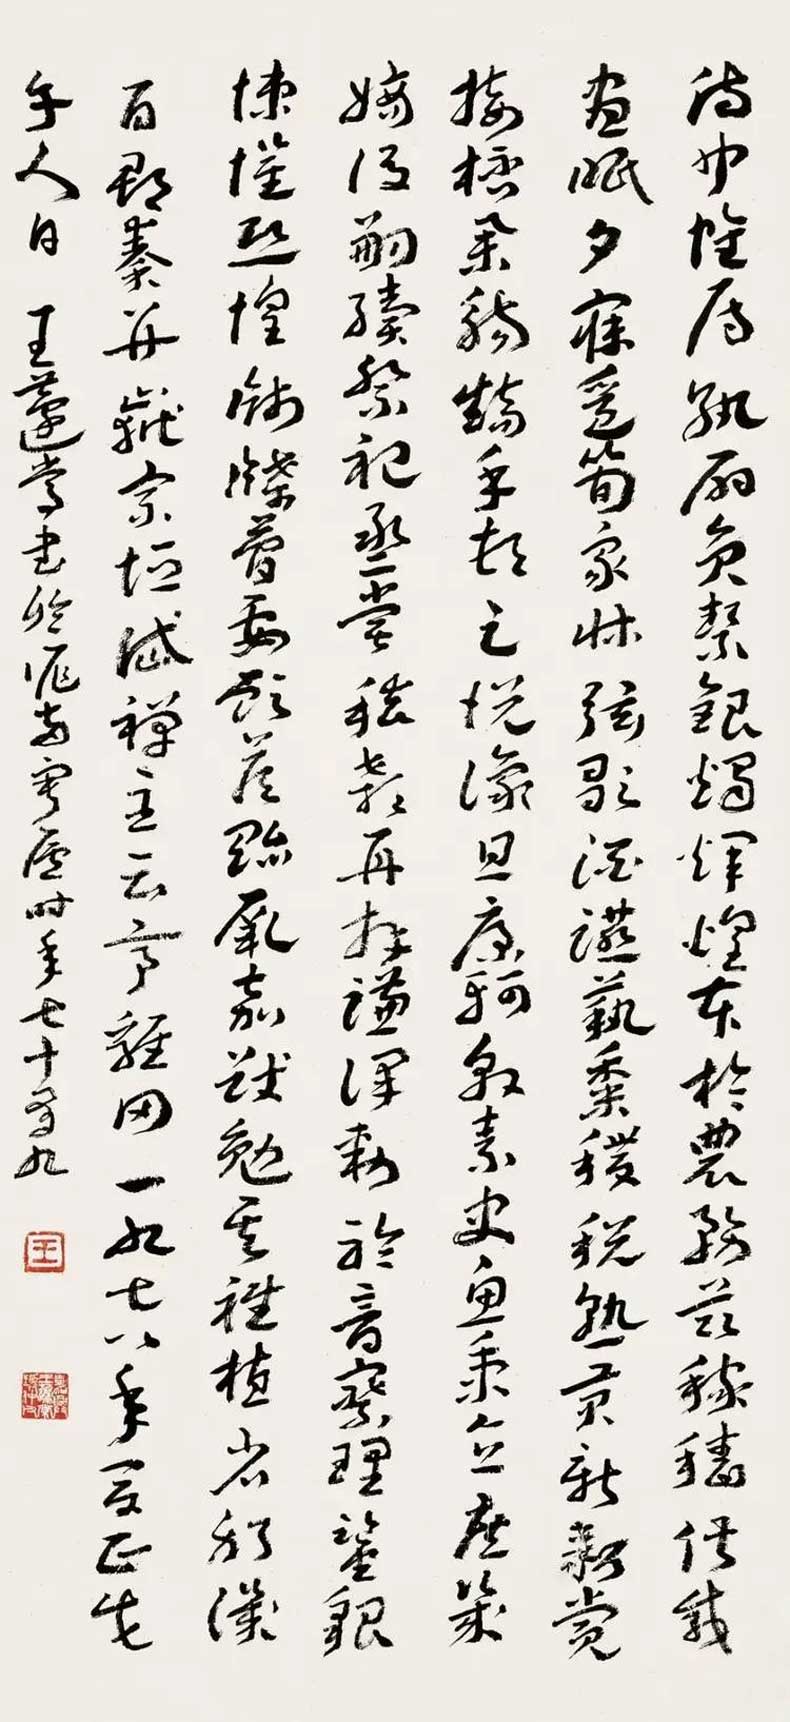 侍巾帷房紈扇員絜銀燭煒煌本於農務茲稼穡俶載
晝眠夕寐籃筍象牀弦歌酒讌蓺黍稷稅熟貢新勸賞
接桮舉觴矯手頓足悅豫且康軻敦素史魚秉直庶幾
嫡後嗣續祭祀烝嘗稽顙再拜謙謹敕聆音察理鑒貌
悚懼恐惶牋牒簡要顧荅貽厥嘉猷勉其祗植省躬譏
百郡秦并嶽宗恒岱禪主云亭雞田一九七八年夏正戊
午人日 王蘧常書於廬時年七十有九
王